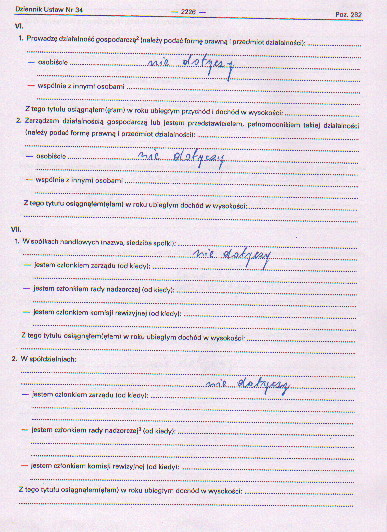 Dziennik Ustaw Nr 34 — 2226 — Poz. 282
VI.
1. Prowadzę działalność gospodarczą² (należy podać formę prawną i przedmiot działalności):
— osobiście nie dotyczy
— wspólnie z innymi osobami
Z tego tytułu osiągnąłem(ęłam) w roku ubiegłym przychód i dochód w wysokości:
2. Zarządzam działalnością gospodarczą lub jestem przedstawicielem, pełnomocnikiem takiej działalności
(należy podać formę prawną i przedmiot działalności):
— osobiście nie dotyczy
— wspólnie z innymi osobami
Z tego tytułu osiągnąłem(ęłam) w roku ubiegłym dochód w wysokości:
VII.
1. W spółkach handlowych (nazwa, siedziba spółki):
nie dotyczy
— jestem członkiem zarządu (od kiedy):
— jestem członkiem rady nadzorczej (od kiedy):
— jestem członkiem komisji rewizyjnej (od kiedy):
Z tego tytułu osiągnąłem(ęłam) w roku ubiegłym dochód w wysokości:
2. W spółdzielniach:
nie dotyczy
— jestem członkiem zarządu (od kiedy):
— jestem członkiem rady nadzorczej³ (od kiedy):
— jestem członkiem komisji rewizyjnej (od kiedy):
Z tego tytułu osiągnąłem(ęłam) w roku ubiegłym dochód w wysokości: